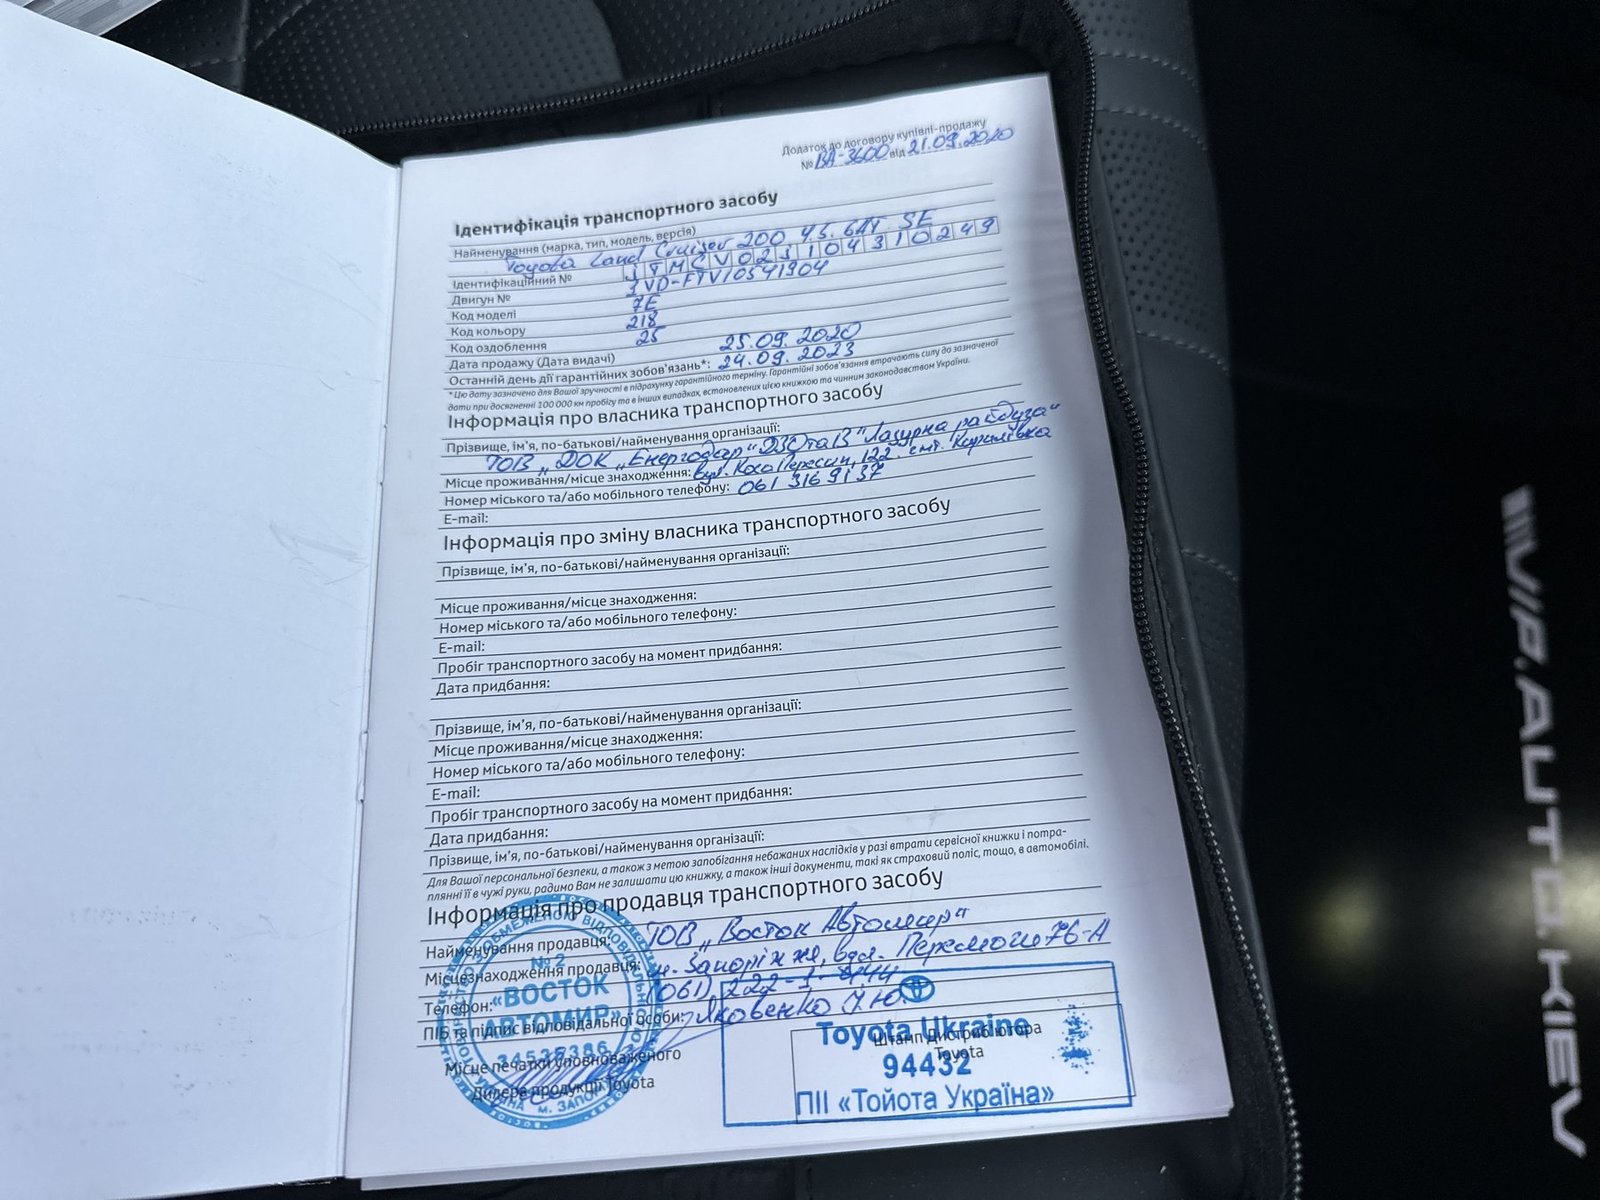 Додаток до договору купівлі-продажу
№ ВА-3600 від 21.09.2020
Ідентифікація транспортного засобу
Найменування (марка, тип, модель, версія)
Toyota Land Cruiser 200 4.5. 6AT SE
Ідентифікаційний № JTMCV02J104310249
Двигун № 1VD-FTV/0541904
Код моделі 7E
Код кольору 218
Код оздоблення 25
Дата продажу (Дата видачі) 25.09.2020
Останній день дії гарантійних зобов'язань*: 24.09.2023
* Цю дату зазначено для Вашої зручності в підрахунку гарантійного терміну. Гарантійні зобов'язання втрачають силу до зазначеної
дати при досягненні 100 000 км пробігу та в інших випадках, встановлених цією книжкою та чинним законодавством України.
Інформація про власника транспортного засобу
Прізвище, ім'я, по-батькові/найменування організації:
ТОВ „ДОК „Енергодар" ДЗОтаВ "Лазурна
Місце проживання/місце знаходження: вул. Коса Пересип, 122. смт. Кирилівка
Номер міського та/або мобільного телефону: 061 316 9137
E-mail:
Інформація про зміну власника транспортного засобу
Прізвище, ім'я, по-батькові/найменування організації:
Місце проживання/місце знаходження:
Номер міського та/або мобільного телефону:
E-mail:
Пробіг транспортного засобу на момент придбання:
Дата придбання:
Прізвище, ім'я, по-батькові/найменування організації:
Місце проживання/місце знаходження:
Номер міського та/або мобільного телефону:
E-mail:
Пробіг транспортного засобу на момент придбання:
Дата придбання:
Прізвище, ім'я, по-батькові/найменування організації:
Для Вашої персональної безпеки, а також з метою запобігання небажаних наслідків у разі втрати сервісної книжки і потра-
плянні її в чужі руки, радимо Вам не залишати цю книжку, а також інші документи, такі як страховий поліс, тощо, в автомобілі.
Інформація про продавця транспортного засобу
Найменування продавця: ТОВ „Восток Автомир"
Місцезнаходження продавця: м. Запоріжжя, вул. Перемоги 76-А
Телефон: (061) 222-
ПІБ та підпис відповідальної особи: Яковенко
Місце печатки уповноваженого
Дилера продукції Toyota
№ 2
«ВОСТОК
АВТОМИР»
Штамп Дистриб'ютора
Toyota
Toyota Ukraine
94432
ПІІ «Тойота Україна»
VIP.AUTO.KIEV